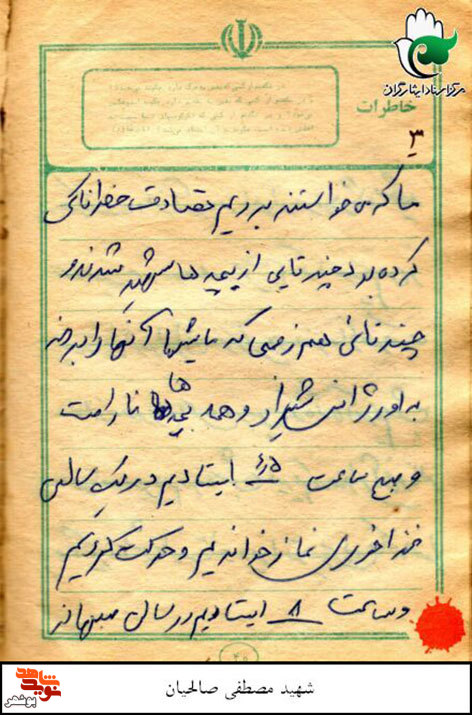 مرکز اسناد ایثارگران
خاطرات
۳
ما که می خواستند برویم تصادف خطرناکی
کرده بود چند تایی از بچه ها شهید شدند و
چند تائی هم زخمی که ماشینها آنها را بردند
به اورژانس شیراز و همه بچه ها ناراحت
و صبح ساعت ۵ر۴ ایستادیم در یک سالن
غذاخوری نماز خواندیم و حرکت کردیم
و ساعت ۸ ایستادیم در سالن صبهانه
۴۵
شهید مصطفی صالحیان
نوید شاهد
بوشهر